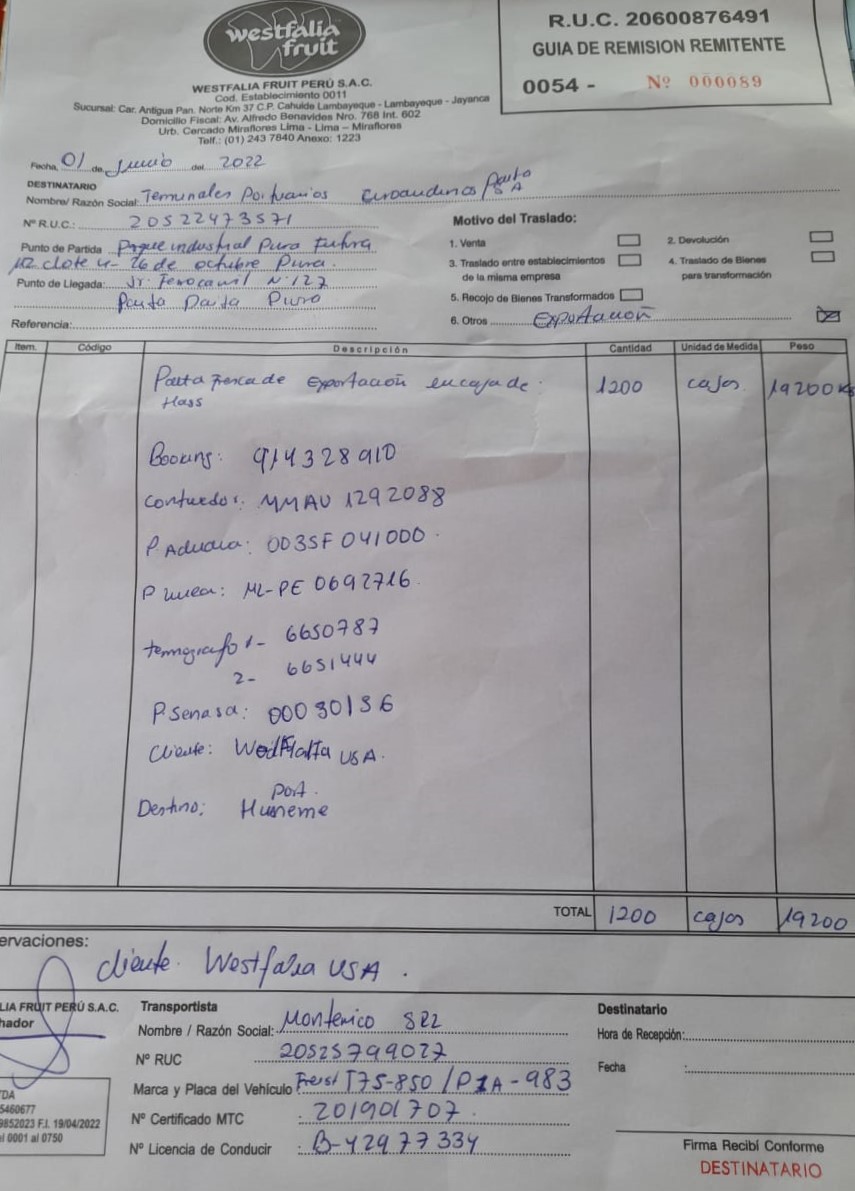 westfalia
fruit
WESTFALIA FRUIT PERÚ S.A.C.
Cod. Establecimiento 0011
Sucursal: Car. Antigua Pan. Norte Km 37 C.P. Cahuide Lambayeque - Lambayeque - Jayanca
Domicilio Fiscal: Av. Alfredo Benavides Nro. 768 Int. 602
Urb. Cercado Miraflores Lima - Lima – Miraflores
Telf.: (01) 243 7840 Anexo: 1223
R.U.C. 20600876491
GUIA DE REMISION REMITENTE
0054 - Nº 000089
Fecha, 01 de Junio del 2022
DESTINATARIO
Nombre/ Razón Social: Terminales Portuarios Euroandinos Paita SA
Nº R.U.C.: 20522473571
Punto de Partida Industrial Piura Futura
Mz lote 4- 26 de octubre Piura.
Punto de Llegada: Jr. Ferrocarril N:127
Paita Paita Piura
Referencia:
Motivo del Traslado:
1. Venta
2. Devolución
3. Traslado entre establecimientos
de la misma empresa
4. Traslado de Bienes
para transformación
5. Recojo de Bienes Transformados
6. Otros Exportación
Item. Código Descripción Cantidad Unidad de Medida Peso
Palta Fresca de Exportación en caja de: 1200 cajas 19200 Kg
Hass
Booking: 914328910
Contenedor: MMAU 1292088
P Aduana: 003SF041000
P Linea: ML-PE 0692716
termografo 1- 6650787
2- 6651444
P Senasa: 00030136
Cliente: Westfalia USA.
Destino: Port.
Hueneme
TOTAL 1200 cajas 19200
ervaciones:
cliente. Westfalia USA.
LIA FRUIT PERÚ S.A.C.
hador
TDA
5460677
9852023 F.I. 19/04/2022
l 0001 al 0750
Transportista
Nombre / Razón Social: Monterico SRL
Nº RUC 20525799027
Marca y Placa del Vehículo T75-850 / P1A-983
Nº Certificado MTC : 201901707
Nº Licencia de Conducir : B-42977334
Destinatario
Hora de Recepción:
Fecha :
Firma Recibí Conforme
DESTINATARIO